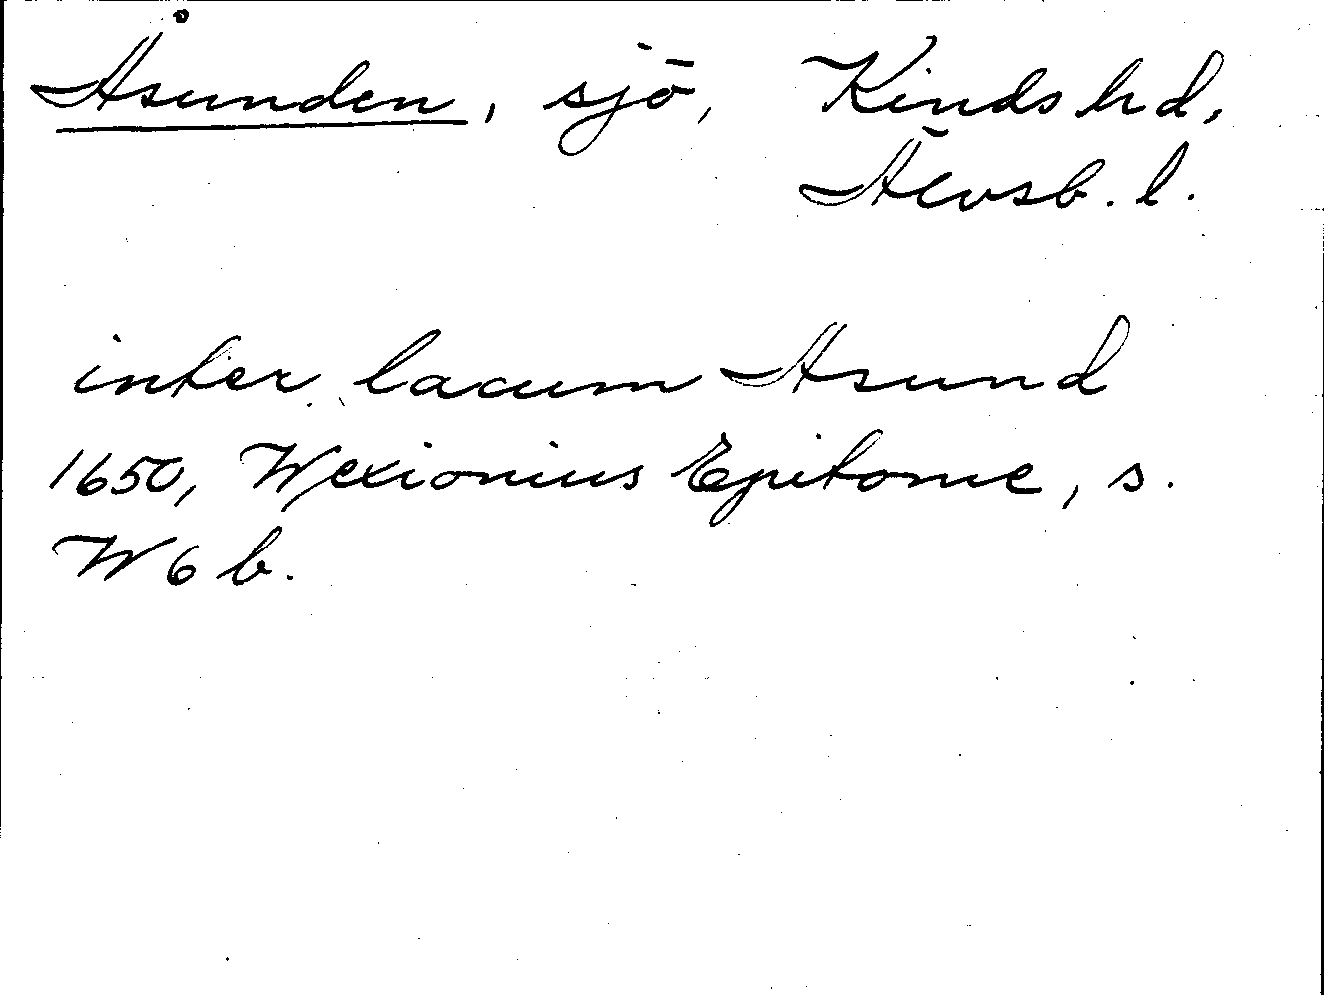 Åsunden, sjö, Kinds hd,
Älvsb. l.
inter lacum Asund
1650, Wexionius Epitome, s.
W 6 b.